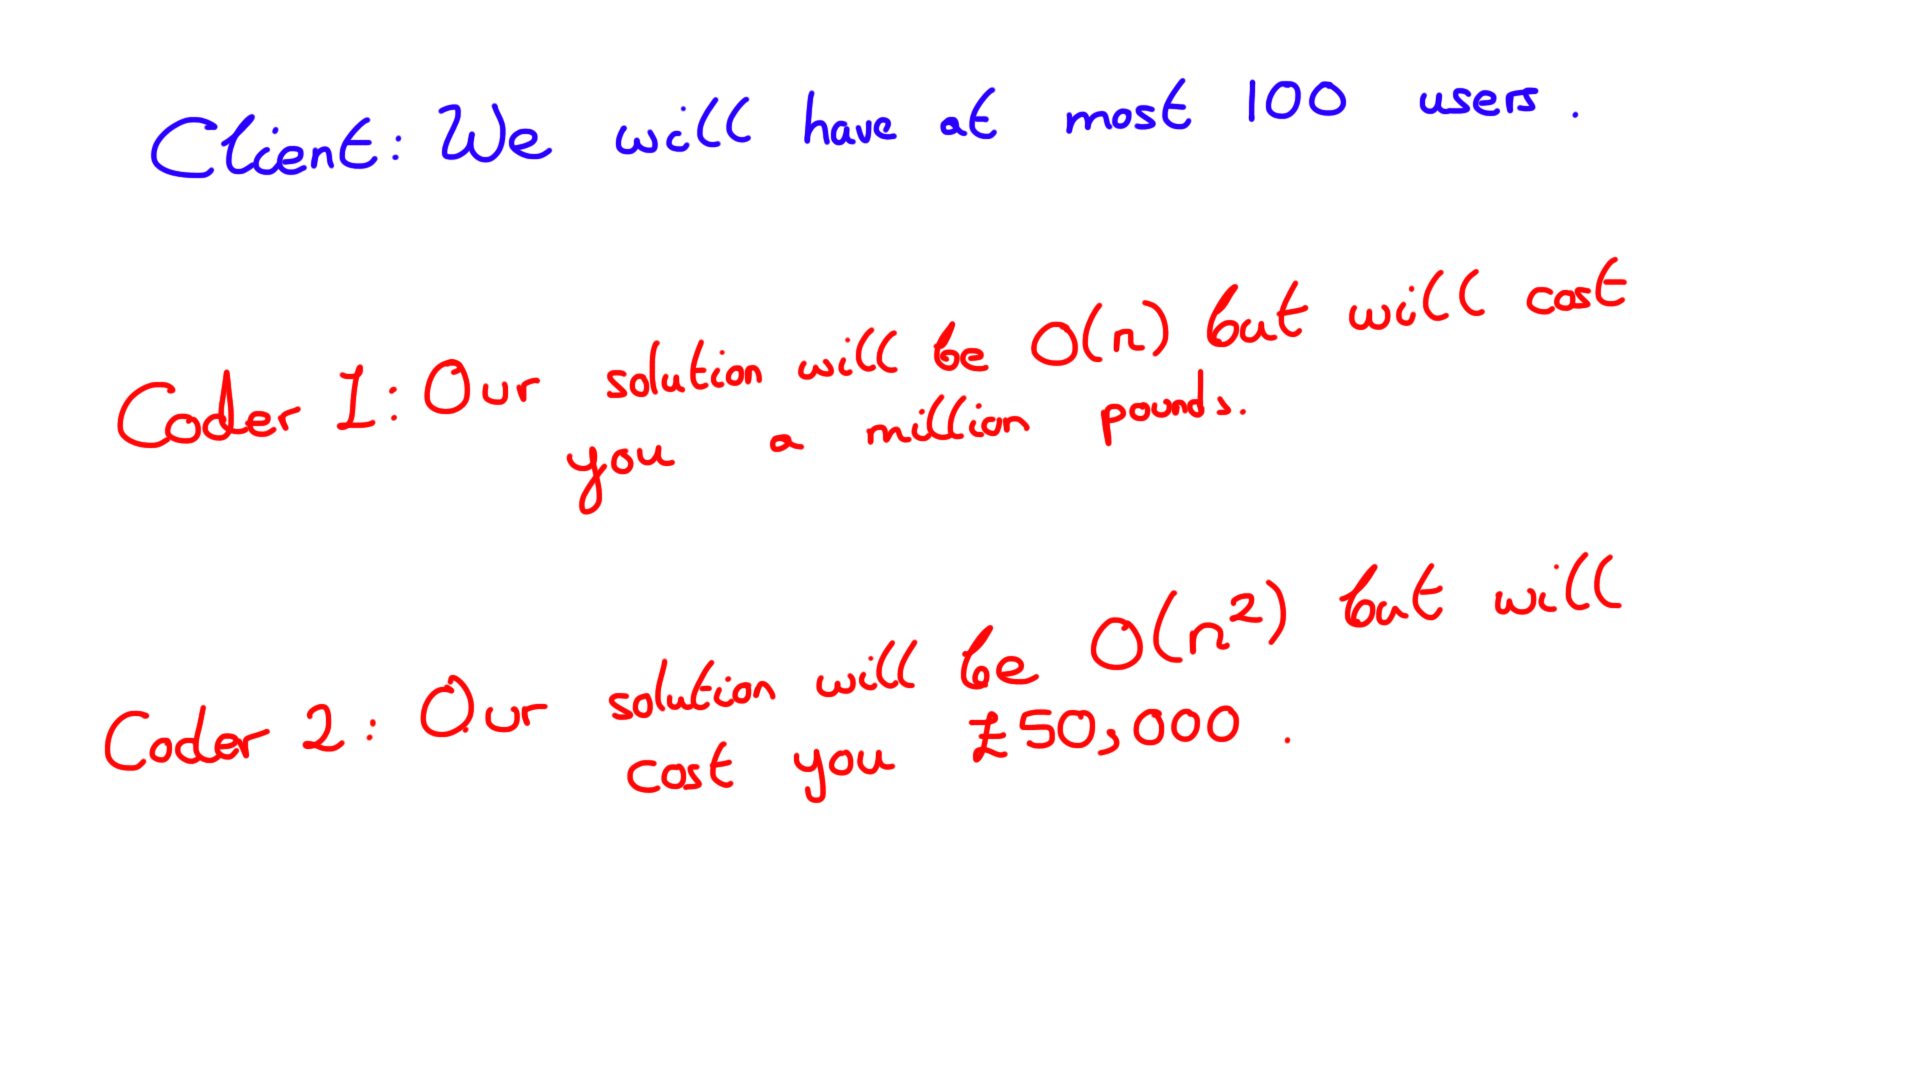 Client: We will have at most 100 users.
Coder 1: Our solution will be O(n) but will cost
you a million pounds.
Coder 2: Our solution will be O(n²) but will
cost you £50,000.